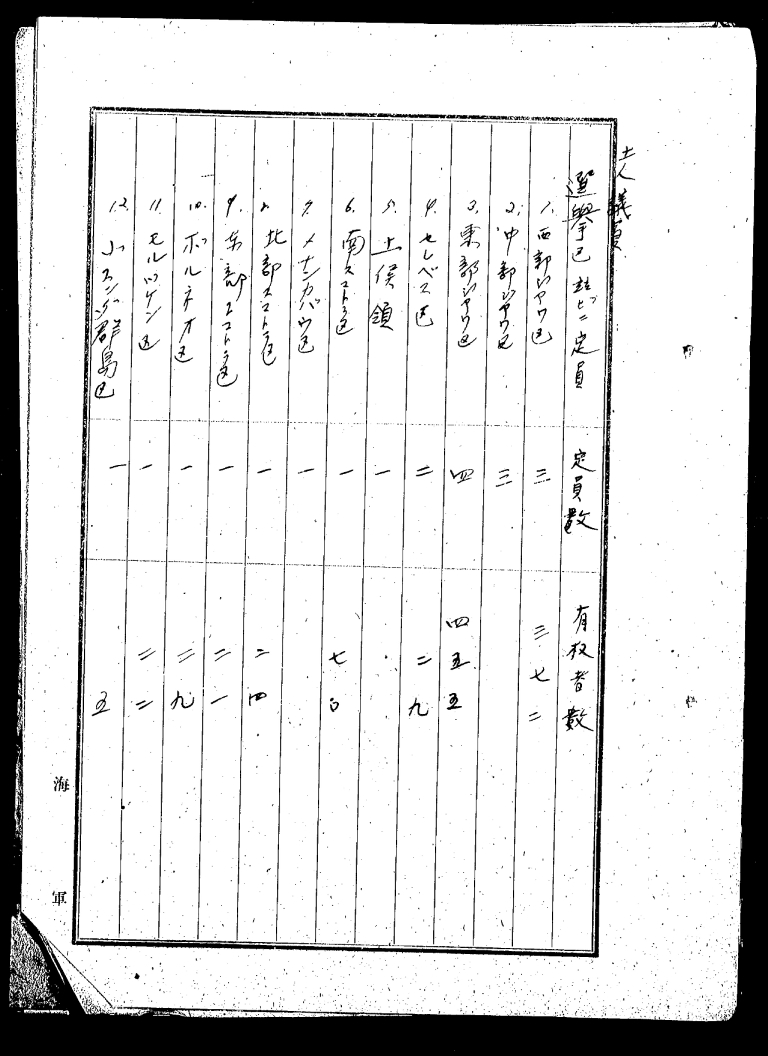 土人議員
選擧区並ビニ定員 定員数 有权者数
1. 西部ジヤワ区 三 三七二
2. 中部ジヤワ区 三
3. 東部ジヤワ区 四 四五五
4. セレベス区 二 二九
5. 土侯領 一
6. 南スマトラ区 一 七〇
7. メナンカバウ区 一
8. 北部スマトラ区 一 二四
9. 東部スマトラ区 一 二一
10. ボルネオ区 一 二九
11. モルツケン区 一 二二
12. 小スンダ群島区 一 五
海軍